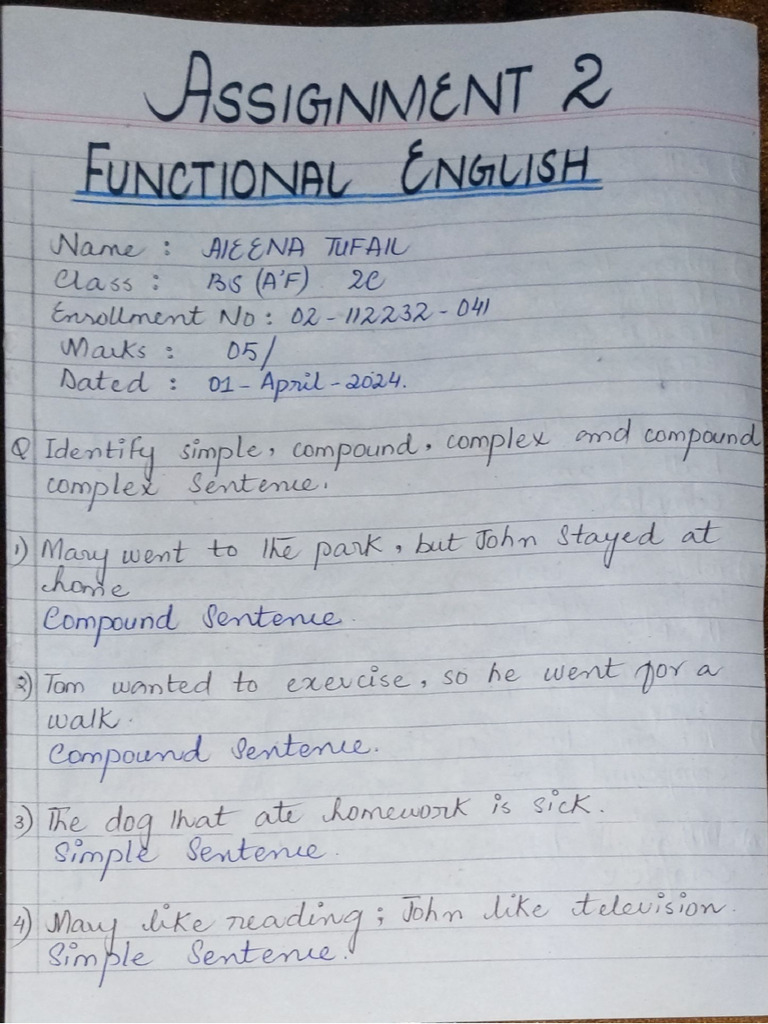 ASSIGNMENT 2
FUNCTIONAL ENGLISH
Name : AIEENA TUFAIL
Class : BS (A'F) 2C
Enrollment No : 02-112232-041
Marks : 05/
Dated : 01-April-2024.
Q Identify simple, compound, complex and compound
complex Sentence.
1) Mary went to the park, but John stayed at
home
Compound Sentence.
2) Tom wanted to exercise, so he went for a
walk.
Compound Sentence.
3) The dog that ate homework is sick.
Simple Sentence.
4) Mary like reading; John like television.
Simple Sentence.